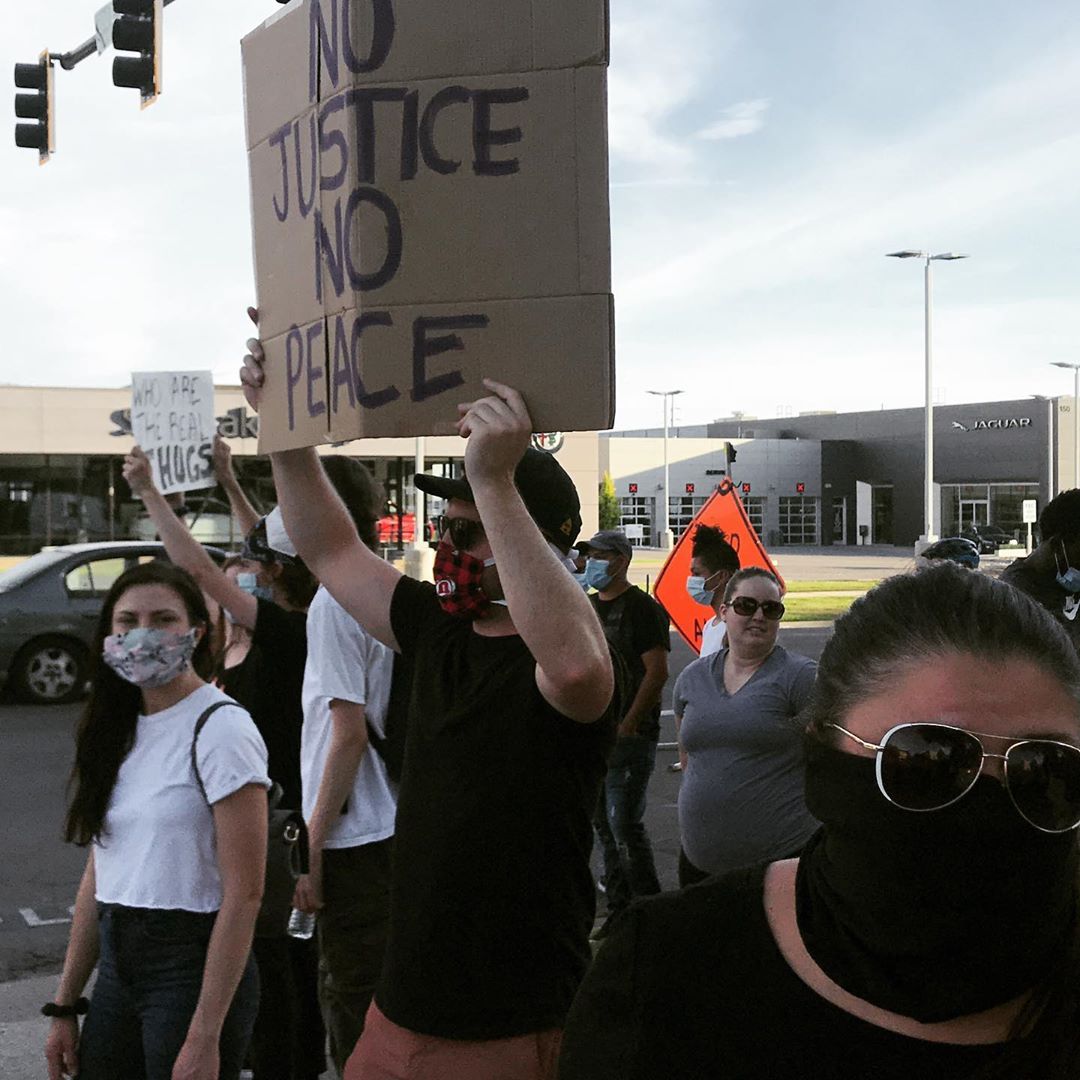 NO
JUSTICE
NO
PEACE
WHO ARE
THE REAL
THUGS
JAGUAR